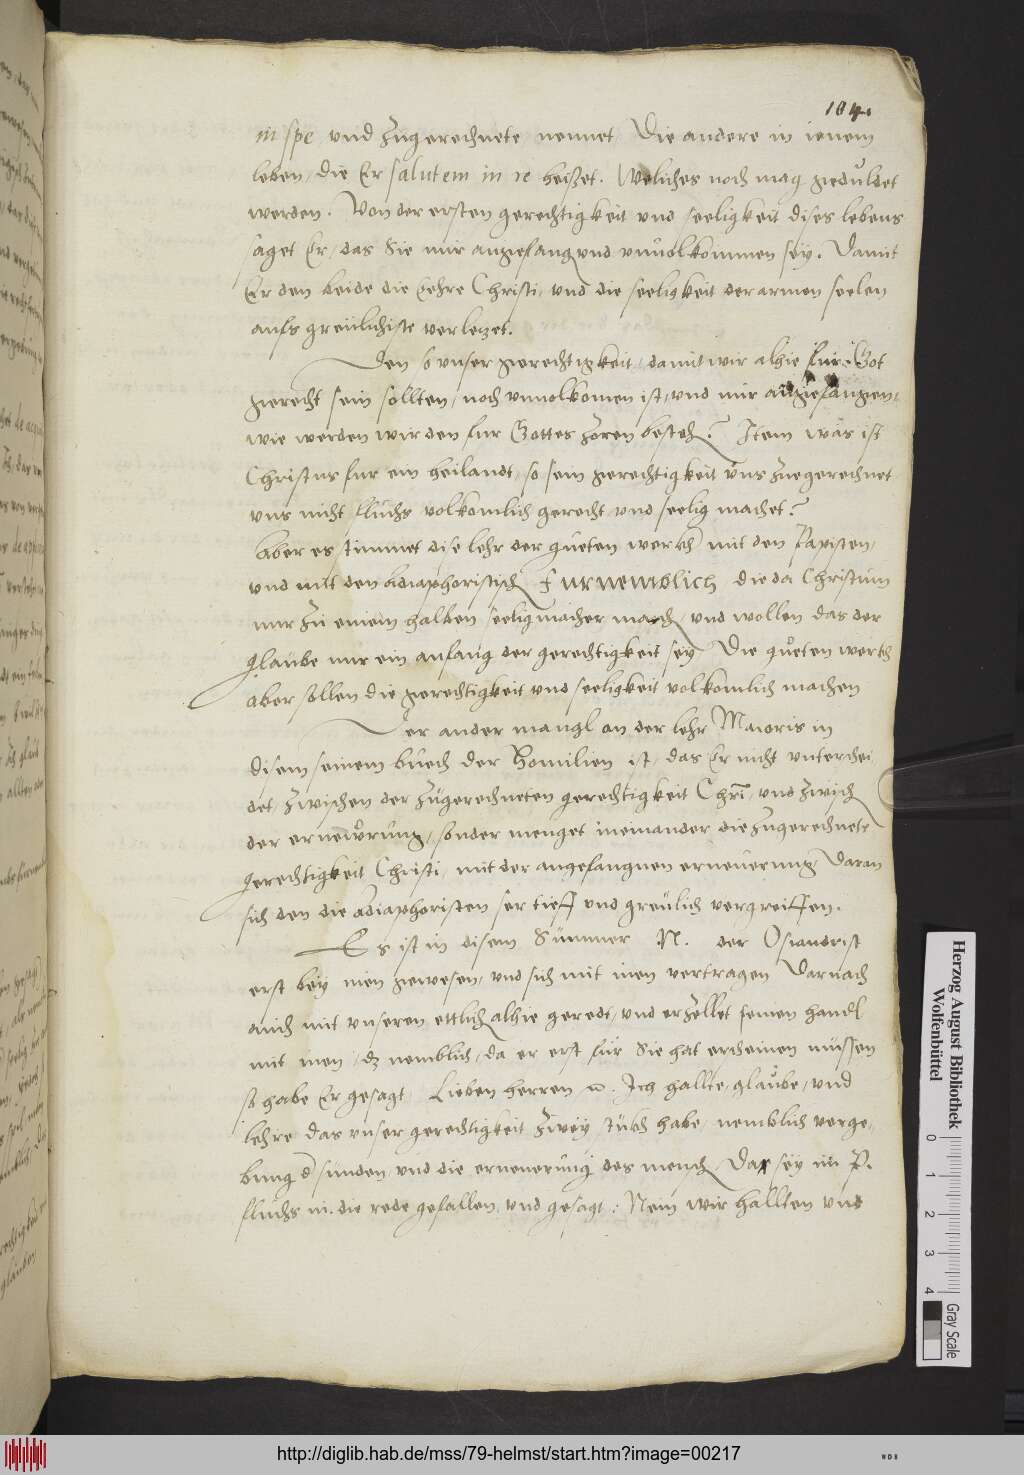 184.
in spe, vnd zugerechnete nennet, Die andere in ienem
leben, die Er salutem in re heißet. Weliches noch mag geduldet
werden. Von der ersten gerechtigkeit vnd seeligkeit dises lebens
saget Er, das Sie nur angefang vnd vnuolkommen sey. Damit
Er den beide die Lehre Christi, vnd die seeligkeit der armen seelen
aufs greulichiste verletzet.
Den so vnser gerechtigkeit, damit wir alhie fur Got
gerecht sein sollten, noch vnuolkomen ist, vnd nur angefangen,
wie werden wir den fur Gottes zoren besteh? Item was ist
Christus fur ein heilandt, so sein gerechtigkeit vns zuegerechnet
vns nicht fluchs volkomlich gerecht vnd seelig machet?
Aber es stimmet dise lehr der gueten werckh mit den Papisten,
vnd mit den Adiaphoristisch furnemblich, die da Christum
nur zu einem halben seeligmacher mach, vnd wollen das der
glaube nur ein anfang der gerechtigkeit sey, Die gueten werckh
aber sollen die gerechtigkeit vnd seeligkeit volkomlich machen
Der ander mangl an der lehr Maioris in
disem seinem buech der Homilien ist, das Er nicht unterschei
det, zwischen der zugerechneten gerechtigkeit Chri, vnd zwisch
der ernewrung, sonder menget ineinander die zugerechnete
gerechtigkeit Christi, mit der angefangnen erneuerung, Daran
sich den die Adiaphoristen ser tieff vnd greulich vergreiffen.
Es ist in disem Summer N. der Osiandrist
erst bey inen gewesen, vnd sich mit inen vertragen, Darnach
auch mit vnseren ettlich alhie geredt, vnd erzellet seinen handl
mit inen, dz nemblich, da er erst fur Sie hat erscheinen müssen
so habe Er gesagt, Lieben herren N. Ich hallte, glaube, vnd
lehre das vnser gerechtigkeit zwey stückh habe, nemblich verge,
bung d sunden, vnd die erneuerung des mensch, Da sey im P.
fluchs in die rede gefallen, vnd gesagt: Nein, wir hallten vnd
Herzog August Bibliothek
Wolfenbüttel
0 1 2 3 4
Gray Scale
http://diglib.hab.de/mss/79-helmst/start.htm?image=00217